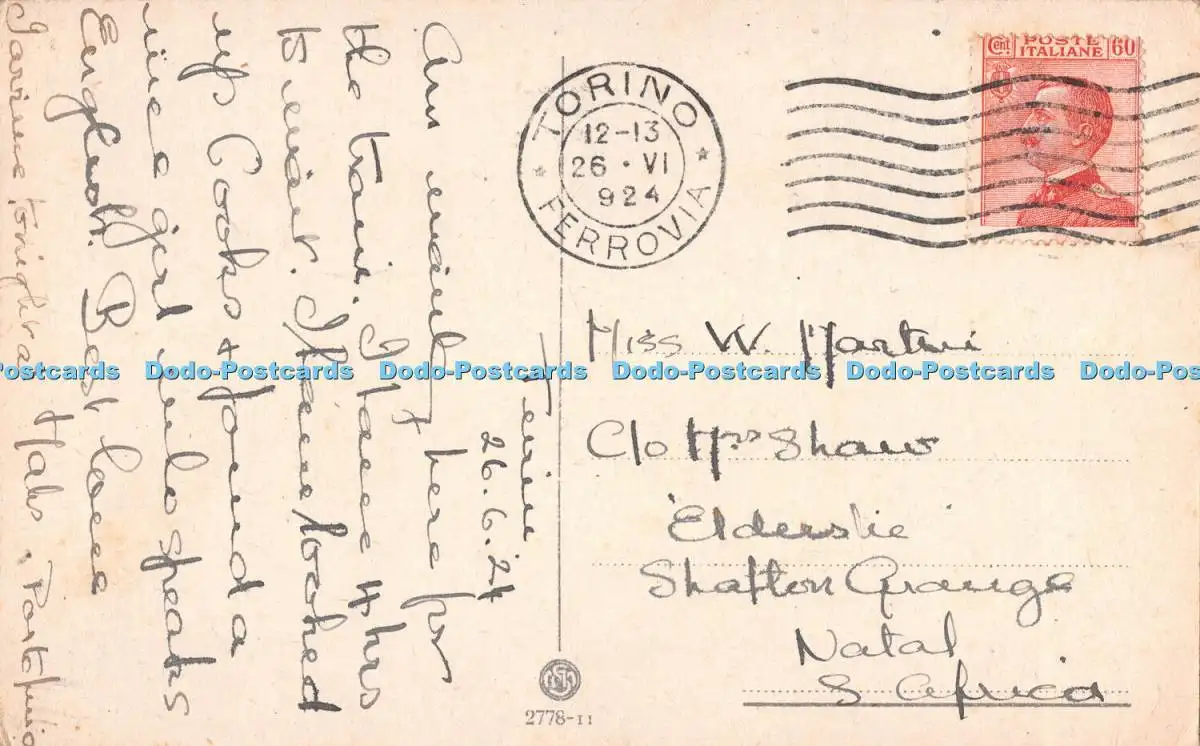 Turin
26.6.24
Am waiting here for
the train. I have 4 hrs
to wait. I have looked
up Cooks & found a
nice girl who speaks
English. Best love
tonight at
TORINO
12-13
26 · VI
924
FERROVIA
Cent POSTE ITALIANE 60
Miss W. Martin
C/o Mrs Shaw
'Elderslie'
Shafton Grange
Natal
S Africa
2778-11
Dodo-Postcards Dodo-Postcards Dodo-Postcards Dodo-Postcards Dodo-Postcards Dodo-Postcards